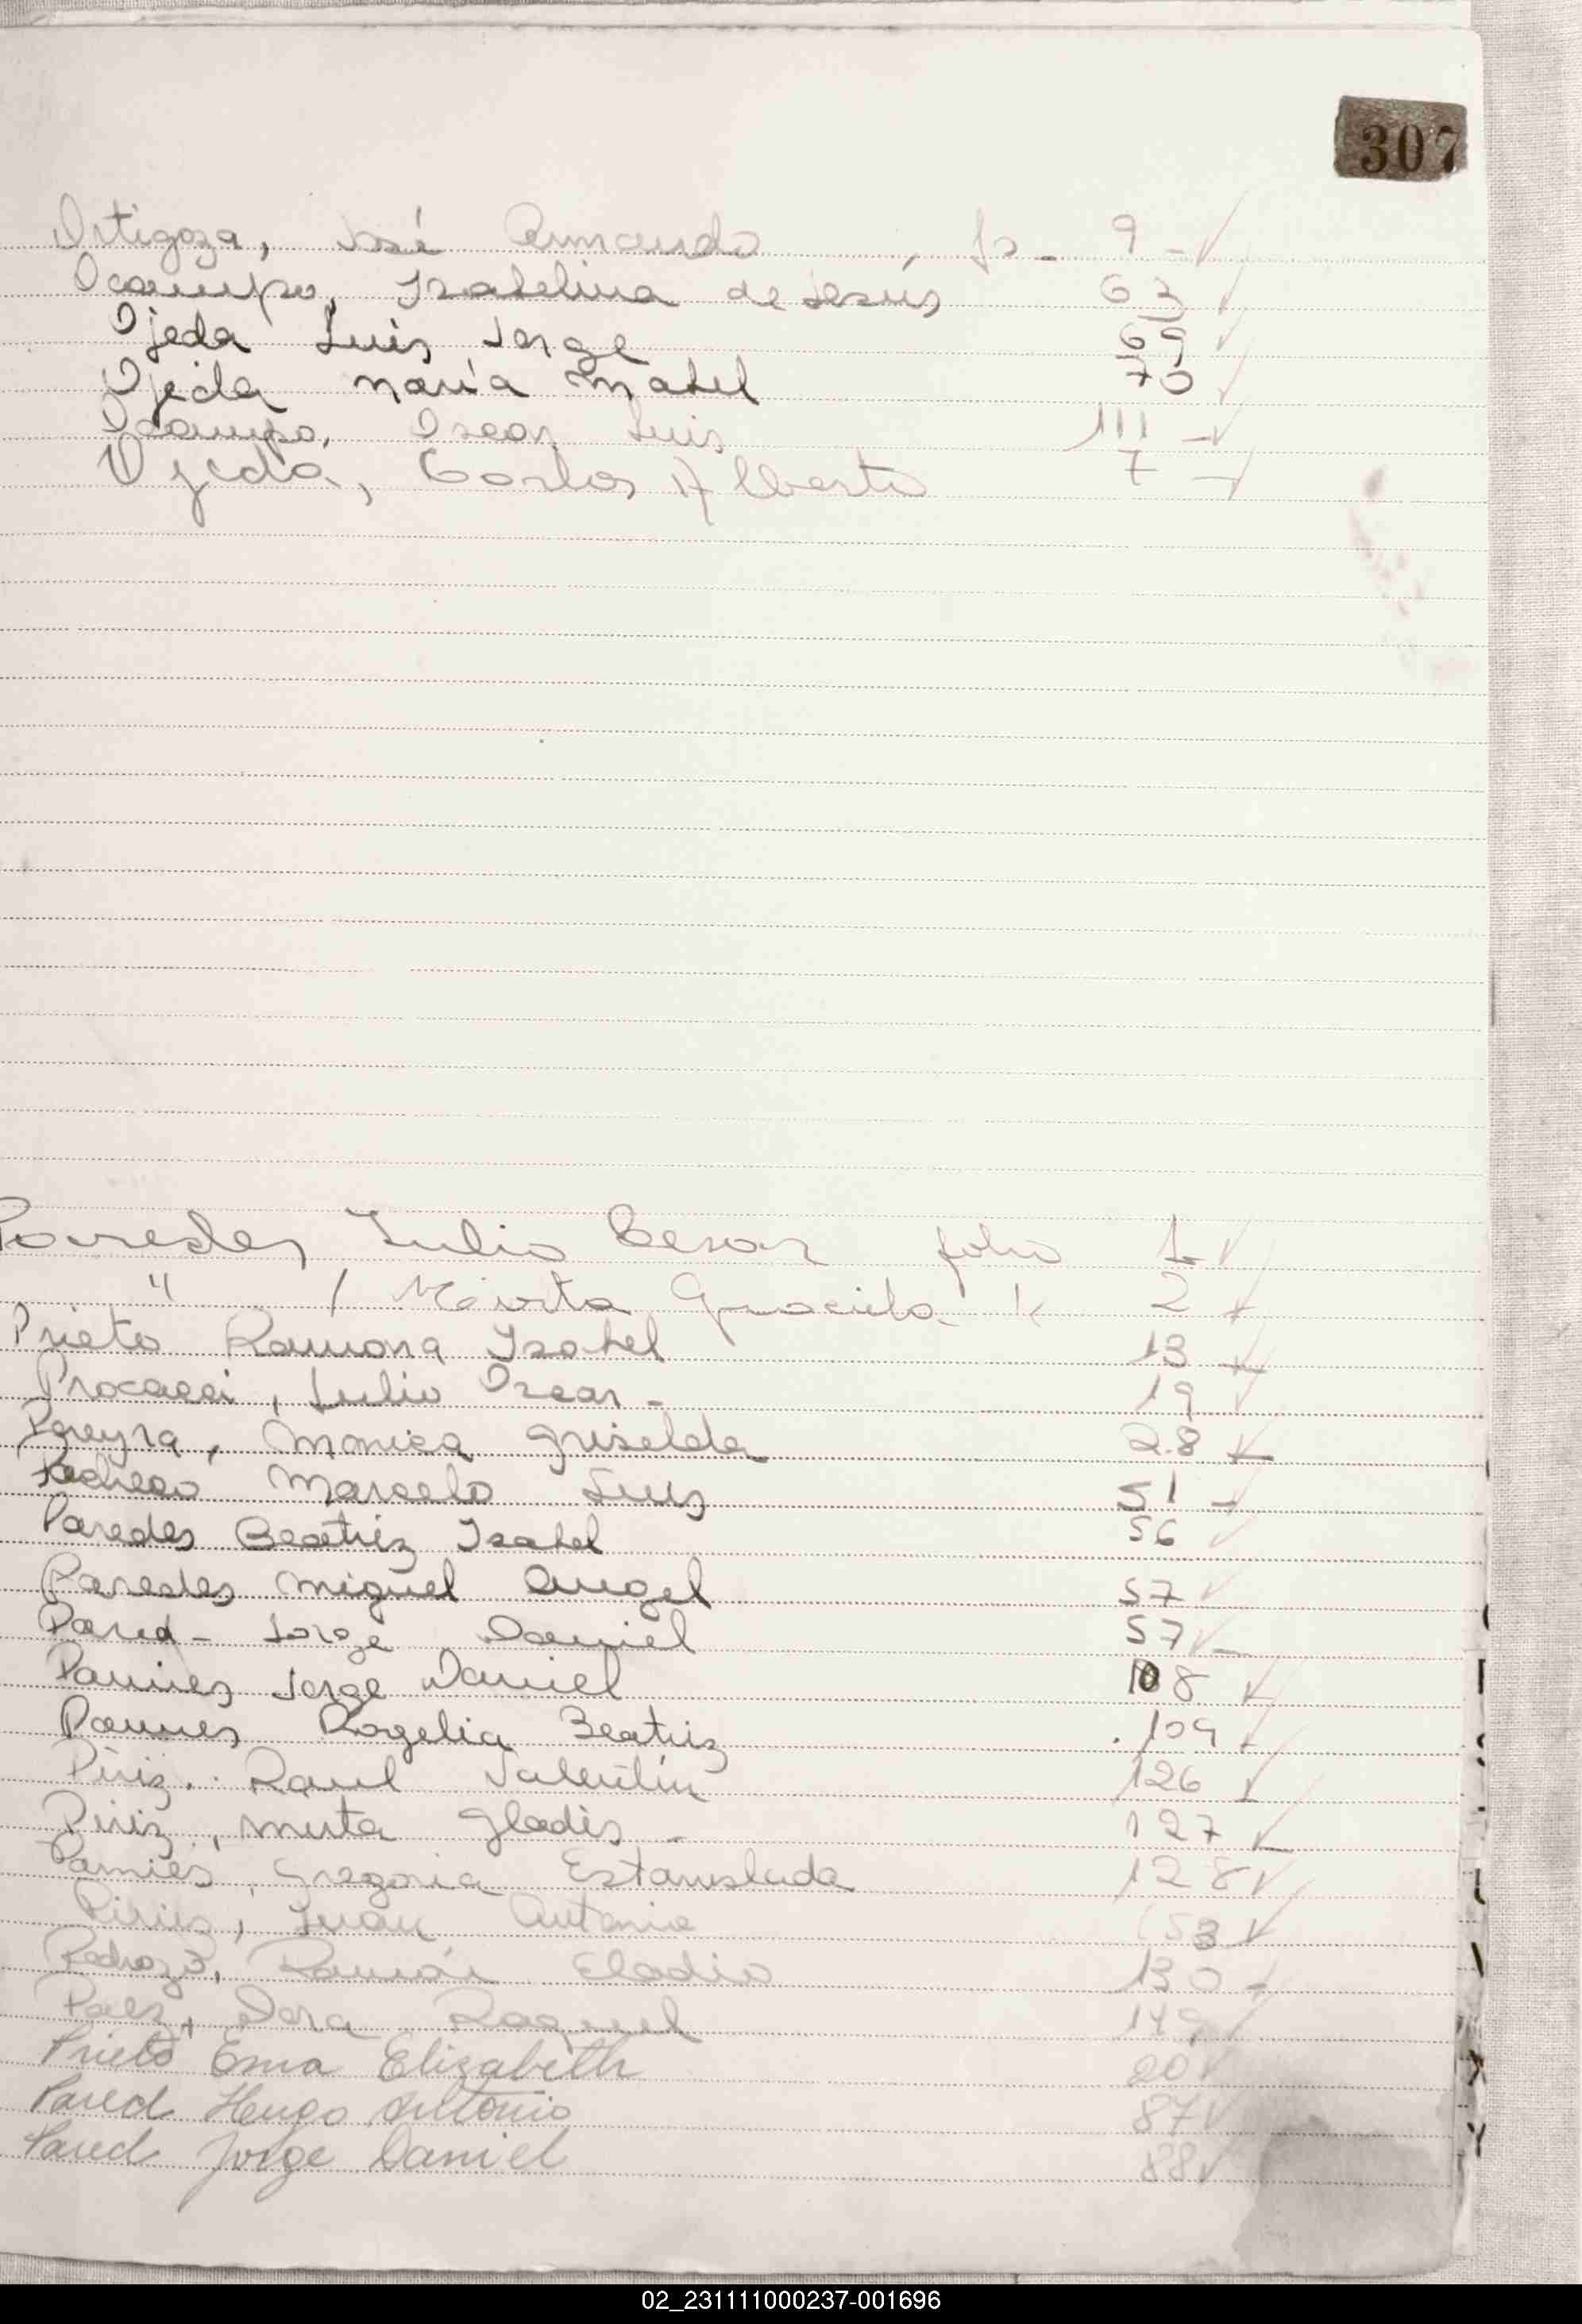 307
Ortigoza, José Armando fo- 9 -
Ocampo, Isabelina de Jesús 63
Ojeda Luis Jorge 69
Ojeda María Mabel 70
Ocampo, Oscar Luis 111 -
Ojeda, Carlos Alberto 7 -
Paredes Julio Cesar folio 1-
" / Mirta Graciela 2
Prieto Ramona Isabel 13
Procacci, Julio Oscar - 19
Pereyra, Monica Griselda 28
Pacheco Marcelo Luis 51 -
Paredes Beatriz Isabel 56
Paredes Miguel Angel 57
Pared - Jorge Daniel 57
Pamies Jorge Daniel 108
Pamies Rogelia Beatriz 109
Piriz. Raul Valentín 126
Piriz, Mirta Gladis - 127
Pamies, Gregoria Estanislada 128
Piriz, Juan Antonio 153
Pedrozo, Ramón Eladio 130
Paez, Dora Raquel 149
Prieto Ema Elizabeth 20
Pared Hugo Antonio 87
Pared Jorge Daniel 88
02_231111000237-001696